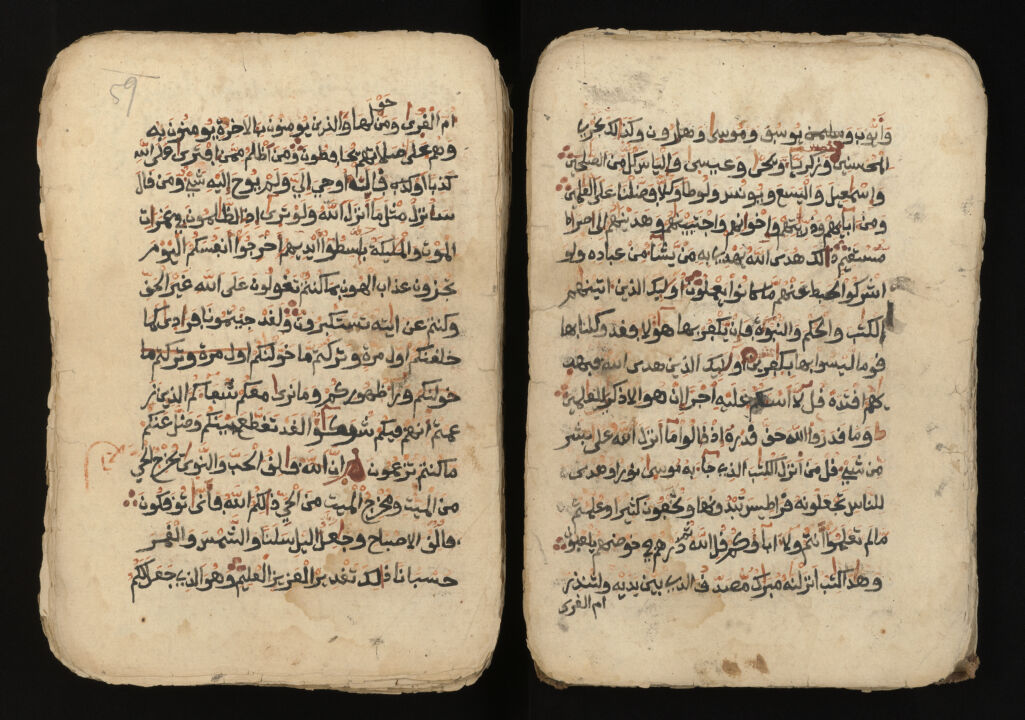 وأيوب وسليمن يوسف وموسى وهارون وكذلك نجزي
المحسنين وزكريا ويحيى وعيسى والياس كل من الصلحين
واسمعيل واليسع ويونس ولوطا وكلا فضلنا على العلمين
ومن ابايهم وذريتهم واخوانهم واجتبينهم وهدينهم الى صراط
مستقيم ذلك هدى الله يهدي به من يشا من عباده ولو
اشركوا لحبط عنهم ما كانوا يعملون اوليك الذين اتينهم
الكتب والحكم والنبوة فإن يكفر بها هؤلا فقد وكلنا بها
قوما ليسوا بها بكفرين اولايك الذين هدى الله فبهد
يهم اقتده قل لا اسلكم عليه اجرا ان هو الا ذكر للعلمين
وما قدروا الله حق قدره إذ قالوا ما أنزل الله على بشر
من شيء قل من أنزل الكتب الذي جا به موسى نورا وهدى
للناس تجعلونه قراطيس تبدونها وتخفون كثيرا وعلمتم
مالم تعلموا أنتم ولا اباؤكم قل الله ثم ذرهم في خوضهم يلعبون
وهذا كتب أنزلنه مبرك مصدق الذي بين يديه ولتنذر
ام القرى
59
ام القرى ومن حولها والذين يومنون بالاخرة يومنون به
وهم على صلاتهم يحافظون ومن أظلم ممن افترى على الله
كذبا أو كذب قال أوحي إلي ولم يوح إليه شيء ومن قال
سأنزل مثل ما أنزل الله ولو ترى اذ الظالمون في غمرات
الموت والمليكة باسطوا أيديهم أخرجوا أنفسكم اليوم
تجزون عذاب الهون بما كنتم تقولون على الله غير الحق
وكنتم عن ايته تستكبرون ولقد جيتمونا فرادى كما
خلقنكم أول مرة وتركتم ما خولنكم أول مرة وتركتم ما
خولنكم ورا ظهوركم وما نرى معكم شفعاكم الذين ز
عمتم أنهم فيكم شركوا لقد تقطع بينكم وضل عنكم
ما كنتم تزعمون إن الله فالق الحب والنوى يخرج الحي
من الميت ومخرج الميت من الحي ذلكم الله فأنى توفكون
فالق الاصباح وجعل اليل سكنا والشمس والقمر
حسبانا ذلك تقدير العزيز العليم وهو الذي جعل لكم